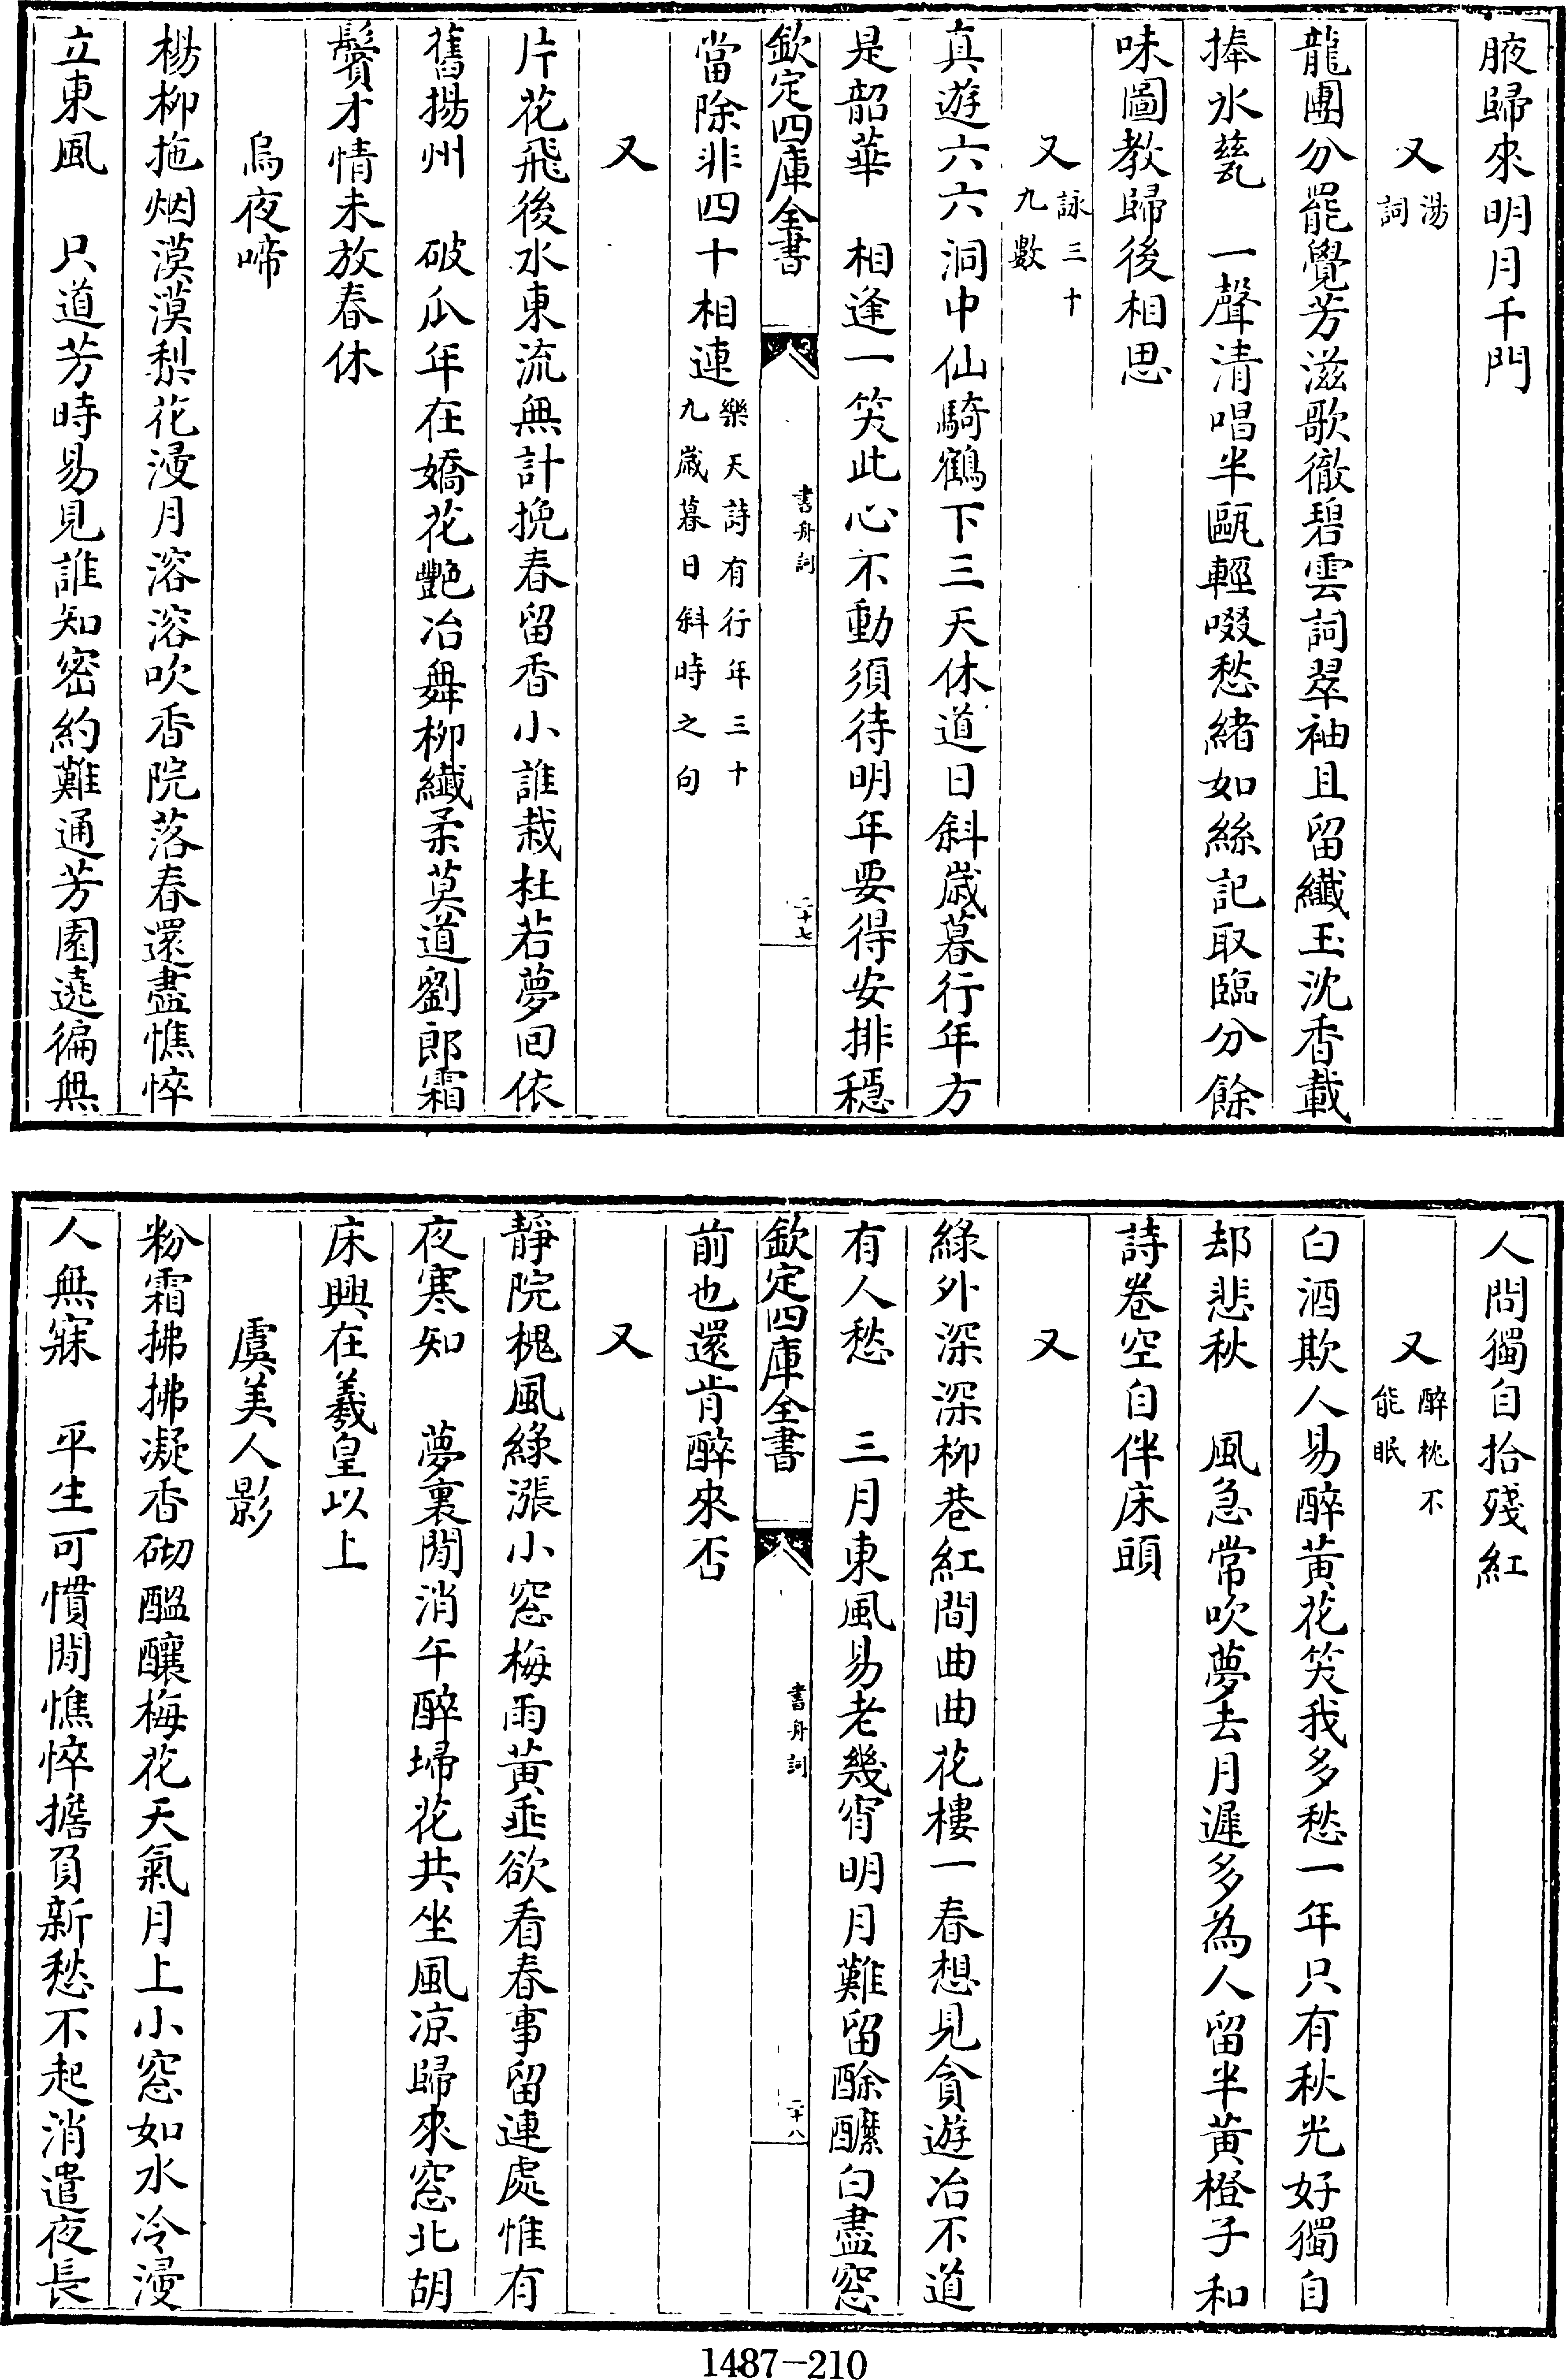 腋歸來明月千門
又湯詞
龍團分罷覺芳滋歌徹碧雲詞翠袖且留纖玉沈香載
捧冰甆　一聲清唱半甌輕啜愁緒如絲記取臨分餘
味圖教歸後相思
又詠三十九數
真遊六六洞中仙騎鶴下三天休道日斜歲暮行年方
是韶華　相逢一笑此心不動須待明年要得安排穩
欽定四庫全書　書舟詞　二十七
當除非四十相連樂天詩有行年三十九歲暮日斜時之句
又
片花飛後水東流無計挽春留香小誰栽杜若夢回依
舊揚州　破瓜年在嬌花艷冶舞柳纖柔莫道劉郎霜
鬢才情未放春休
烏夜啼
楊柳拖烟漠漠梨花浸月溶溶吹香院落春還盡憔悴
立東風　只道芳時易見誰知密約難通芳園遶徧無
人問獨自拾殘紅
又醉枕不能眠
白酒欺人易醉黃花笑我多愁一年只有秋光好獨自
却悲秋　風急常吹夢去月遲多為人留半黃橙子和
詩卷空自伴床頭
又
綠外深深柳巷紅間曲曲花樓一春想見貪遊冶不道
有人愁　三月東風易老幾宵明月難留酴醾白盡窓
欽定四庫全書　書舟詞　二十八
前也還肯醉來否
又
靜院槐風綠漲小窓梅雨黃垂欲看春事留連處惟有
夜寒知　夢裏閒消午醉埽花共坐風凉歸來窓北胡
床興在羲皇以上
虞美人影
粉霜拂拂凝香砌醖釀梅花天氣月上小窓如水冷浸
人無寐　平生可慣閒憔悴擔負新愁不起消遣夜長
1487-210